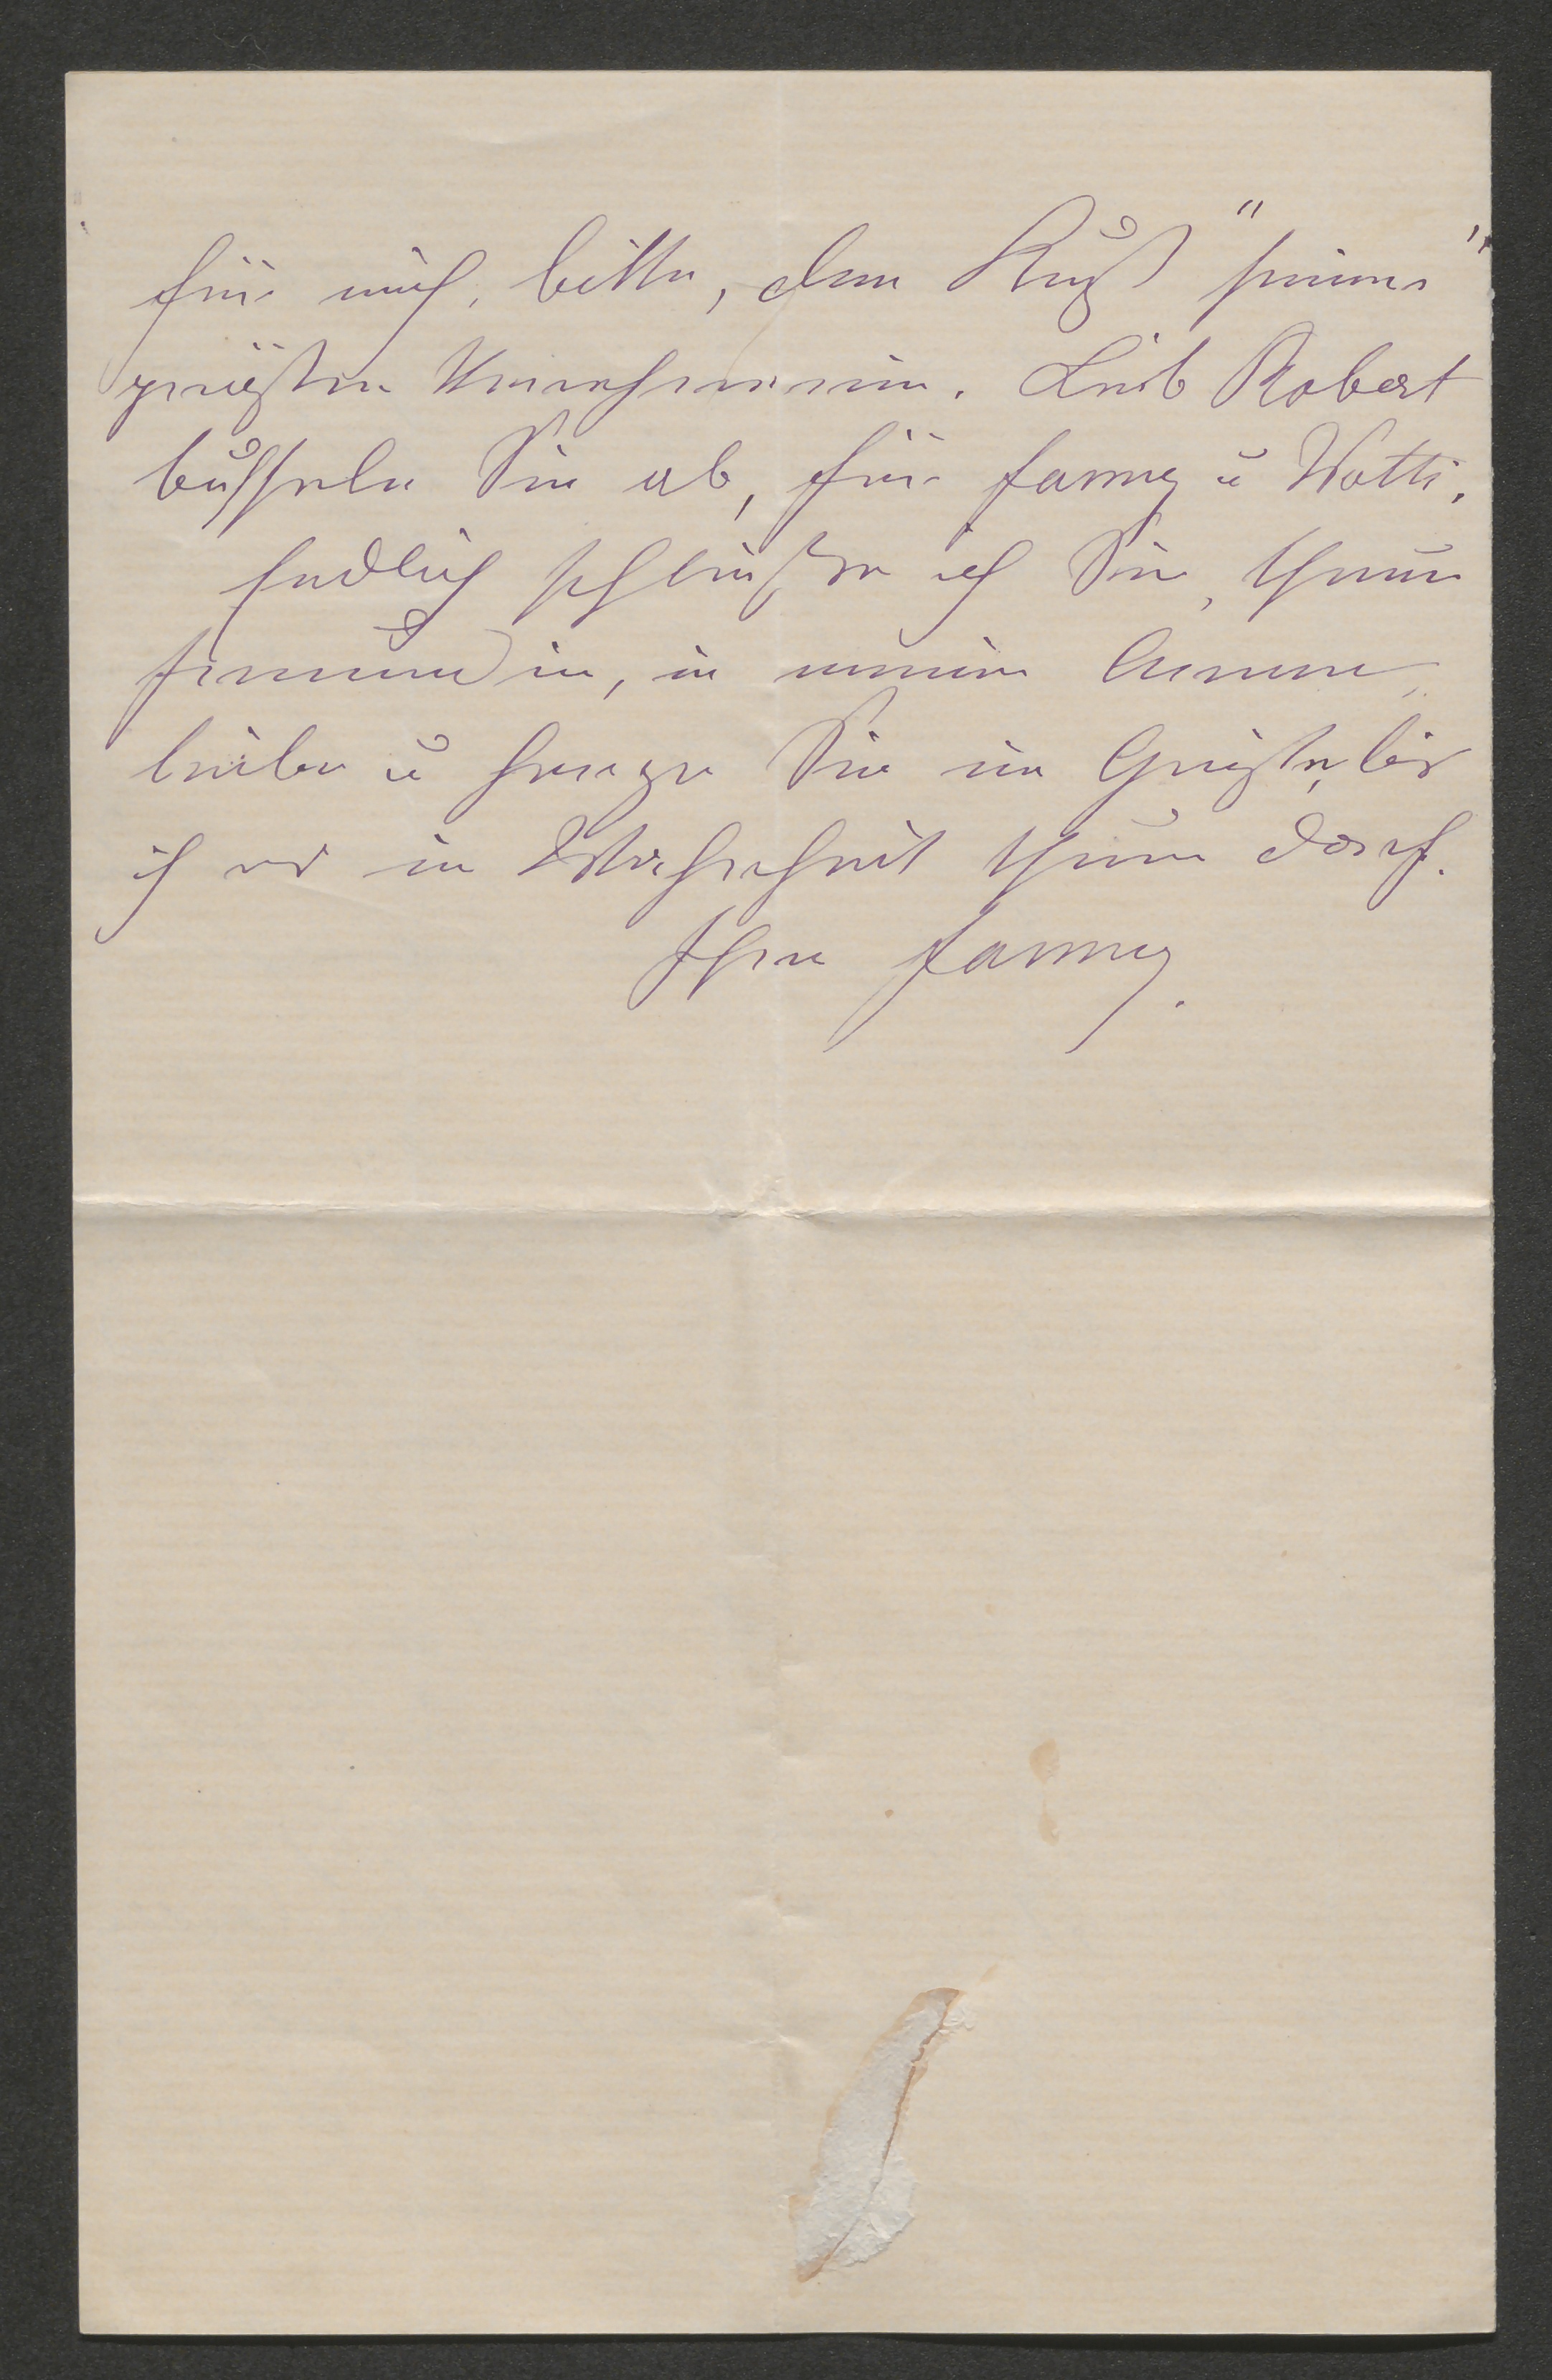 für mich, bitte, den Kuß "seiner"
größten Verehrerin. Leib Robert
busseln Sie ab, für Fanny u Wotti.
Endlich schließe ich Sie, theure
Freundin, in meine Arme,
liebe u herze Sie im Geiste, bis
ich es in Wahrheit thun darf.
Ihre Fanny.